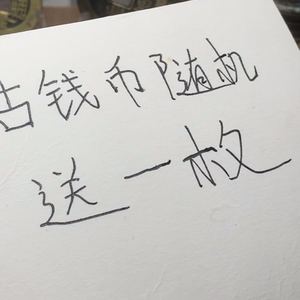 古钱币随机
送一枚